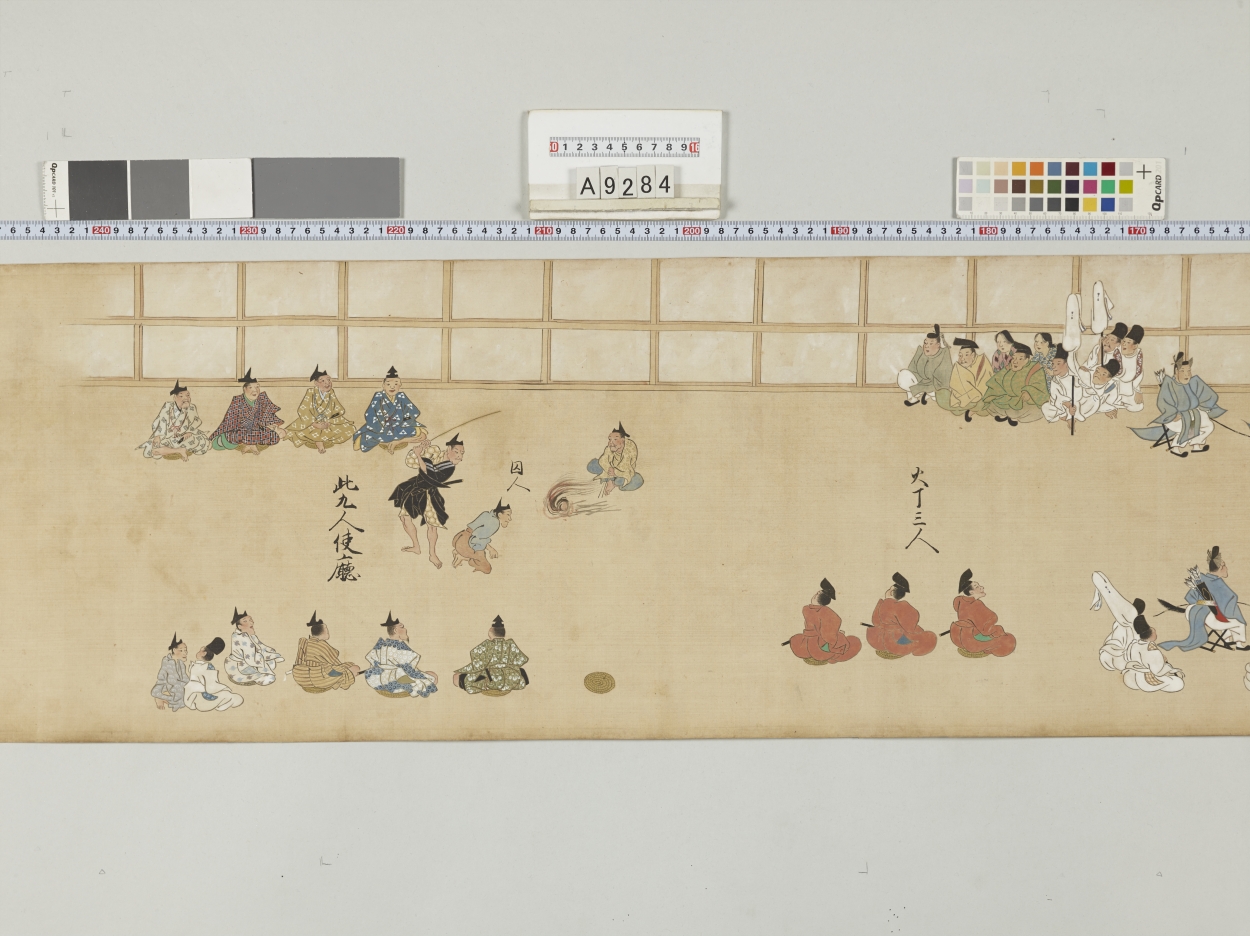 QPCARD
0 1 2 3 4 5 6 7 8 9 10
A9284
QPCARD
6 5 4 3 2 1 240 9 8 7 6 5 4 3 2 1 230 9 8 7 6 5 4 3 2 1 220 9 8 7 6 5 4 3 2 1 210 9 8 7 6 5 4 3 2 1 200 9 8 7 6 5 4 3 2 1 190 9 8 7 6 5 4 3 2 1 180 9 8 7 6 5 4 3 2 1 170 9 8 7 6 5 4 3
火丁三人
囚人
此九人使廳